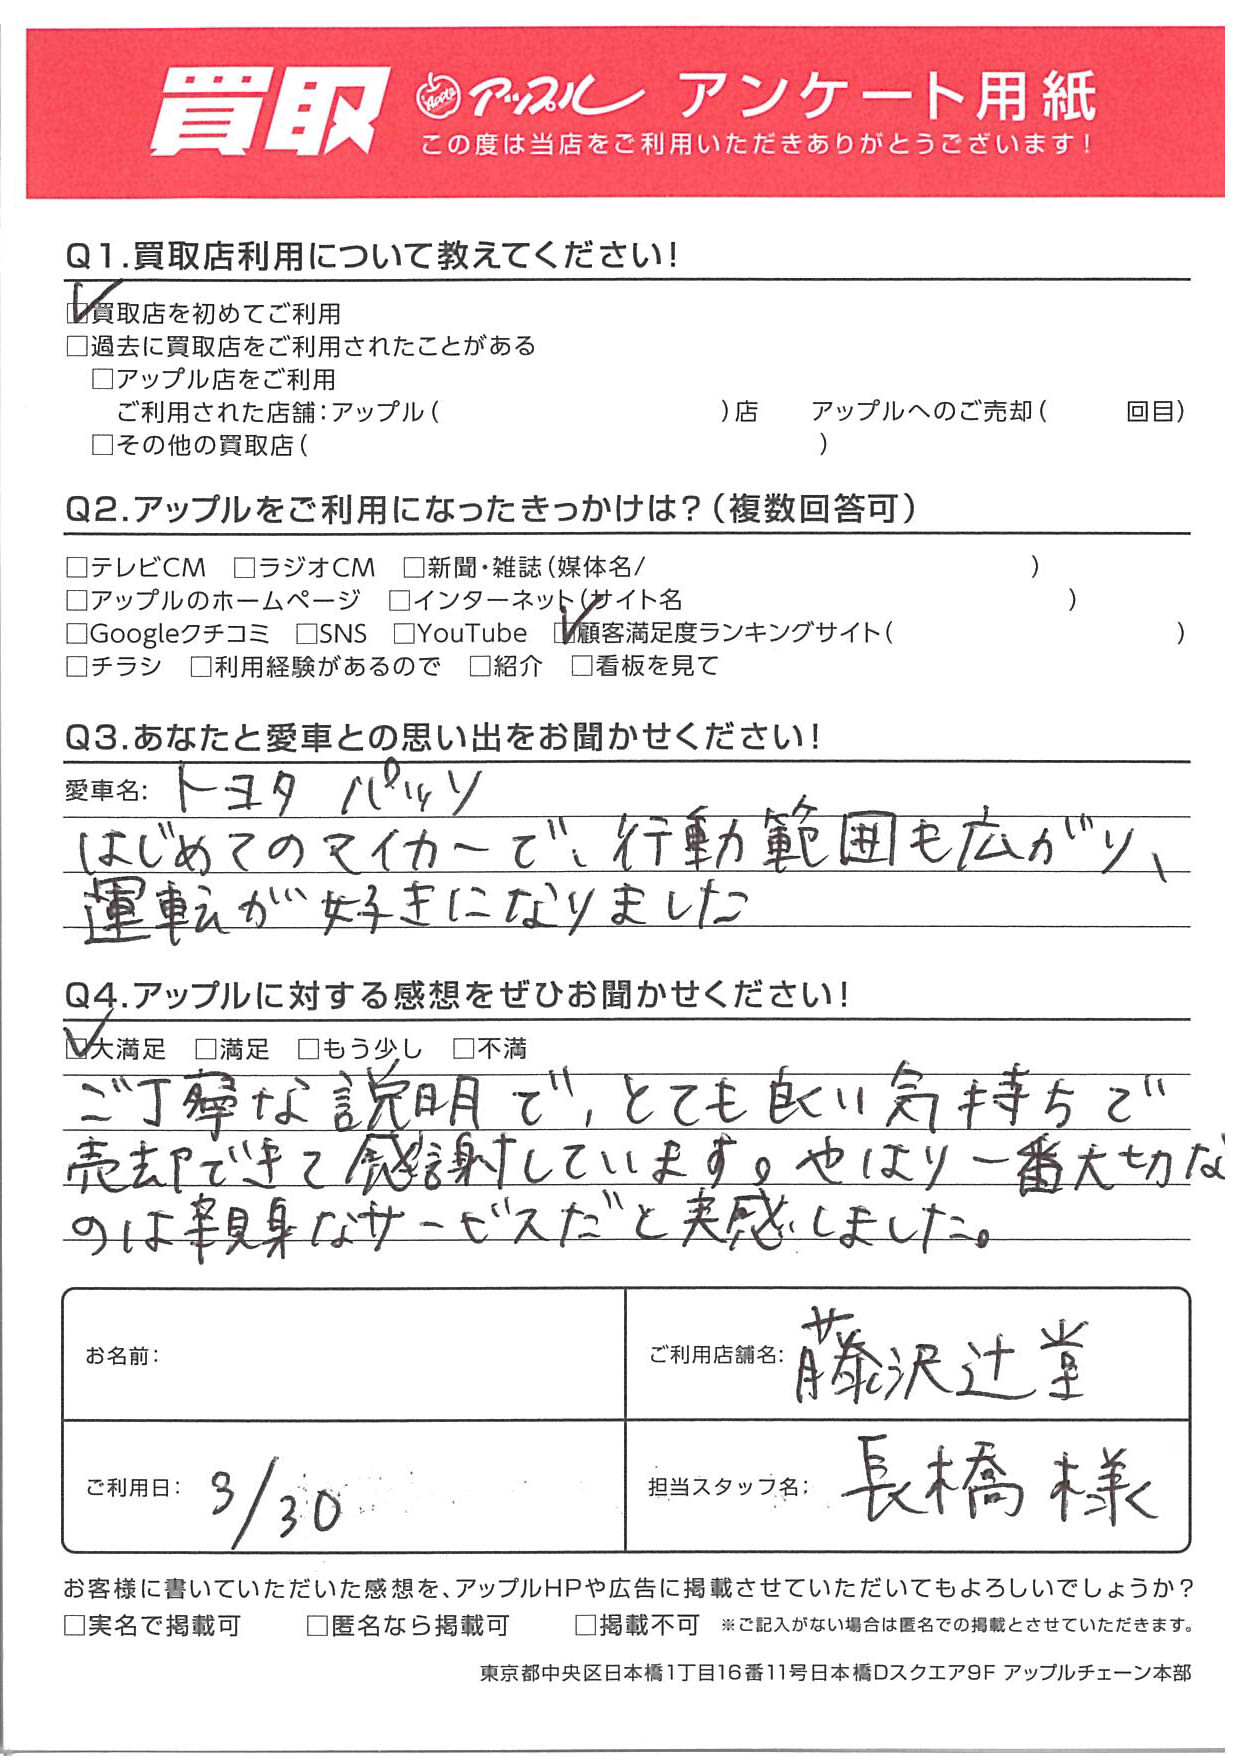 買取 Apple アップル アンケート用紙
この度は当店をご利用いただきありがとうございます!
Q1.買取店利用について教えてください!
☑買取店を初めてご利用
□過去に買取店をご利用されたことがある
□アップル店をご利用
ご利用された店舗:アップル( )店 アップルへのご売却( 回目)
□その他の買取店( )
Q2.アップルをご利用になったきっかけは?(複数回答可)
□テレビCM □ラジオCM □新聞・雑誌(媒体名/ )
□アップルのホームページ □インターネット(サイト名 )
□Googleクチコミ □SNS □YouTube ☑顧客満足度ランキングサイト( )
□チラシ □利用経験があるので □紹介 □看板を見て
Q3.あなたと愛車との思い出をお聞かせください!
愛車名: トヨタ パッソ
はじめてのマイカーで、行動範囲も広がり、
運転が好きになりました
Q4.アップルに対する感想をぜひお聞かせください!
☑大満足 □満足 □もう少し □不満
ご丁寧な説明で、とても良い気持ちで
売却できて感謝しています。やはり一番大切な
のは親身なサービスだと実感しました。
お名前: ご利用店舗名: 藤沢辻堂
ご利用日: 3/30 担当スタッフ名: 長橋 様
お客様に書いていただいた感想を、アップルHPや広告に掲載させていただいてもよろしいでしょうか?
□実名で掲載可 □匿名なら掲載可 □掲載不可 ※ご記入がない場合は匿名での掲載とさせていただきます。
東京都中央区日本橋1丁目16番11号日本橋Dスクエア9F アップルチェーン本部